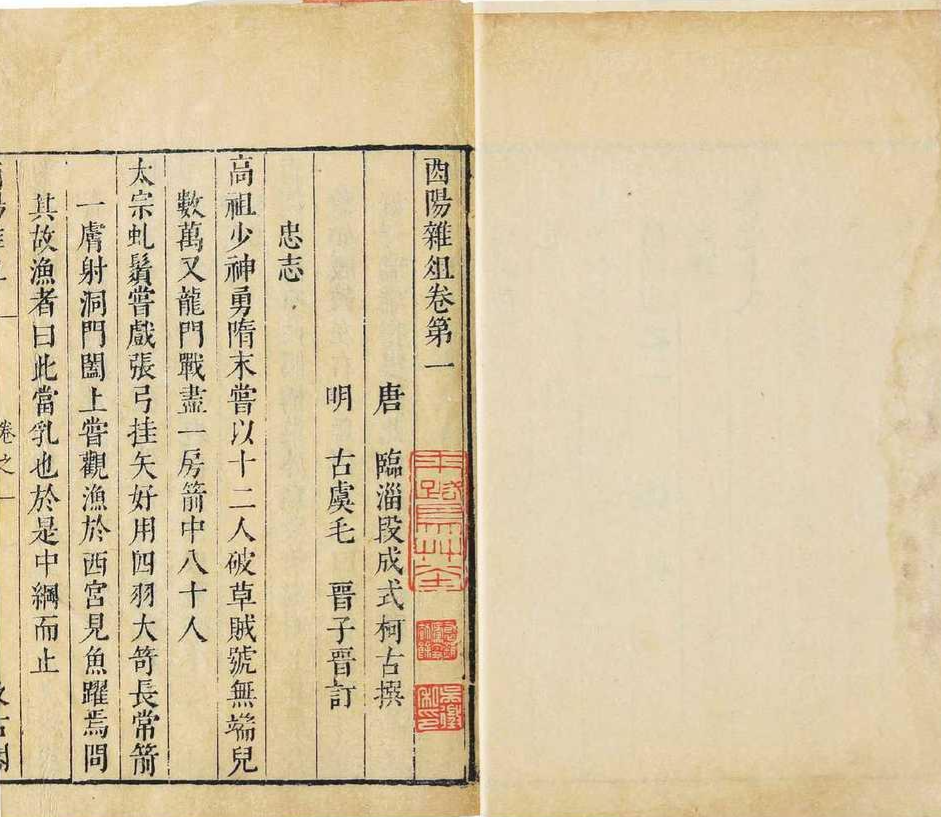 酉陽雜俎卷第一
唐 臨淄段成式柯古撰
明 古虞毛 晉子晉訂
忠志
高祖少神勇隋末嘗以十二人破草賊號無端兒
數萬又龍門戰盡一房箭中八十人
太宗虬鬚嘗戲張弓挂矢好用四羽大笴長常箭
一膚射洞門闔上嘗觀漁於西宮見魚躍焉問
其故漁者曰此當乳也於是中網而止
卷之一